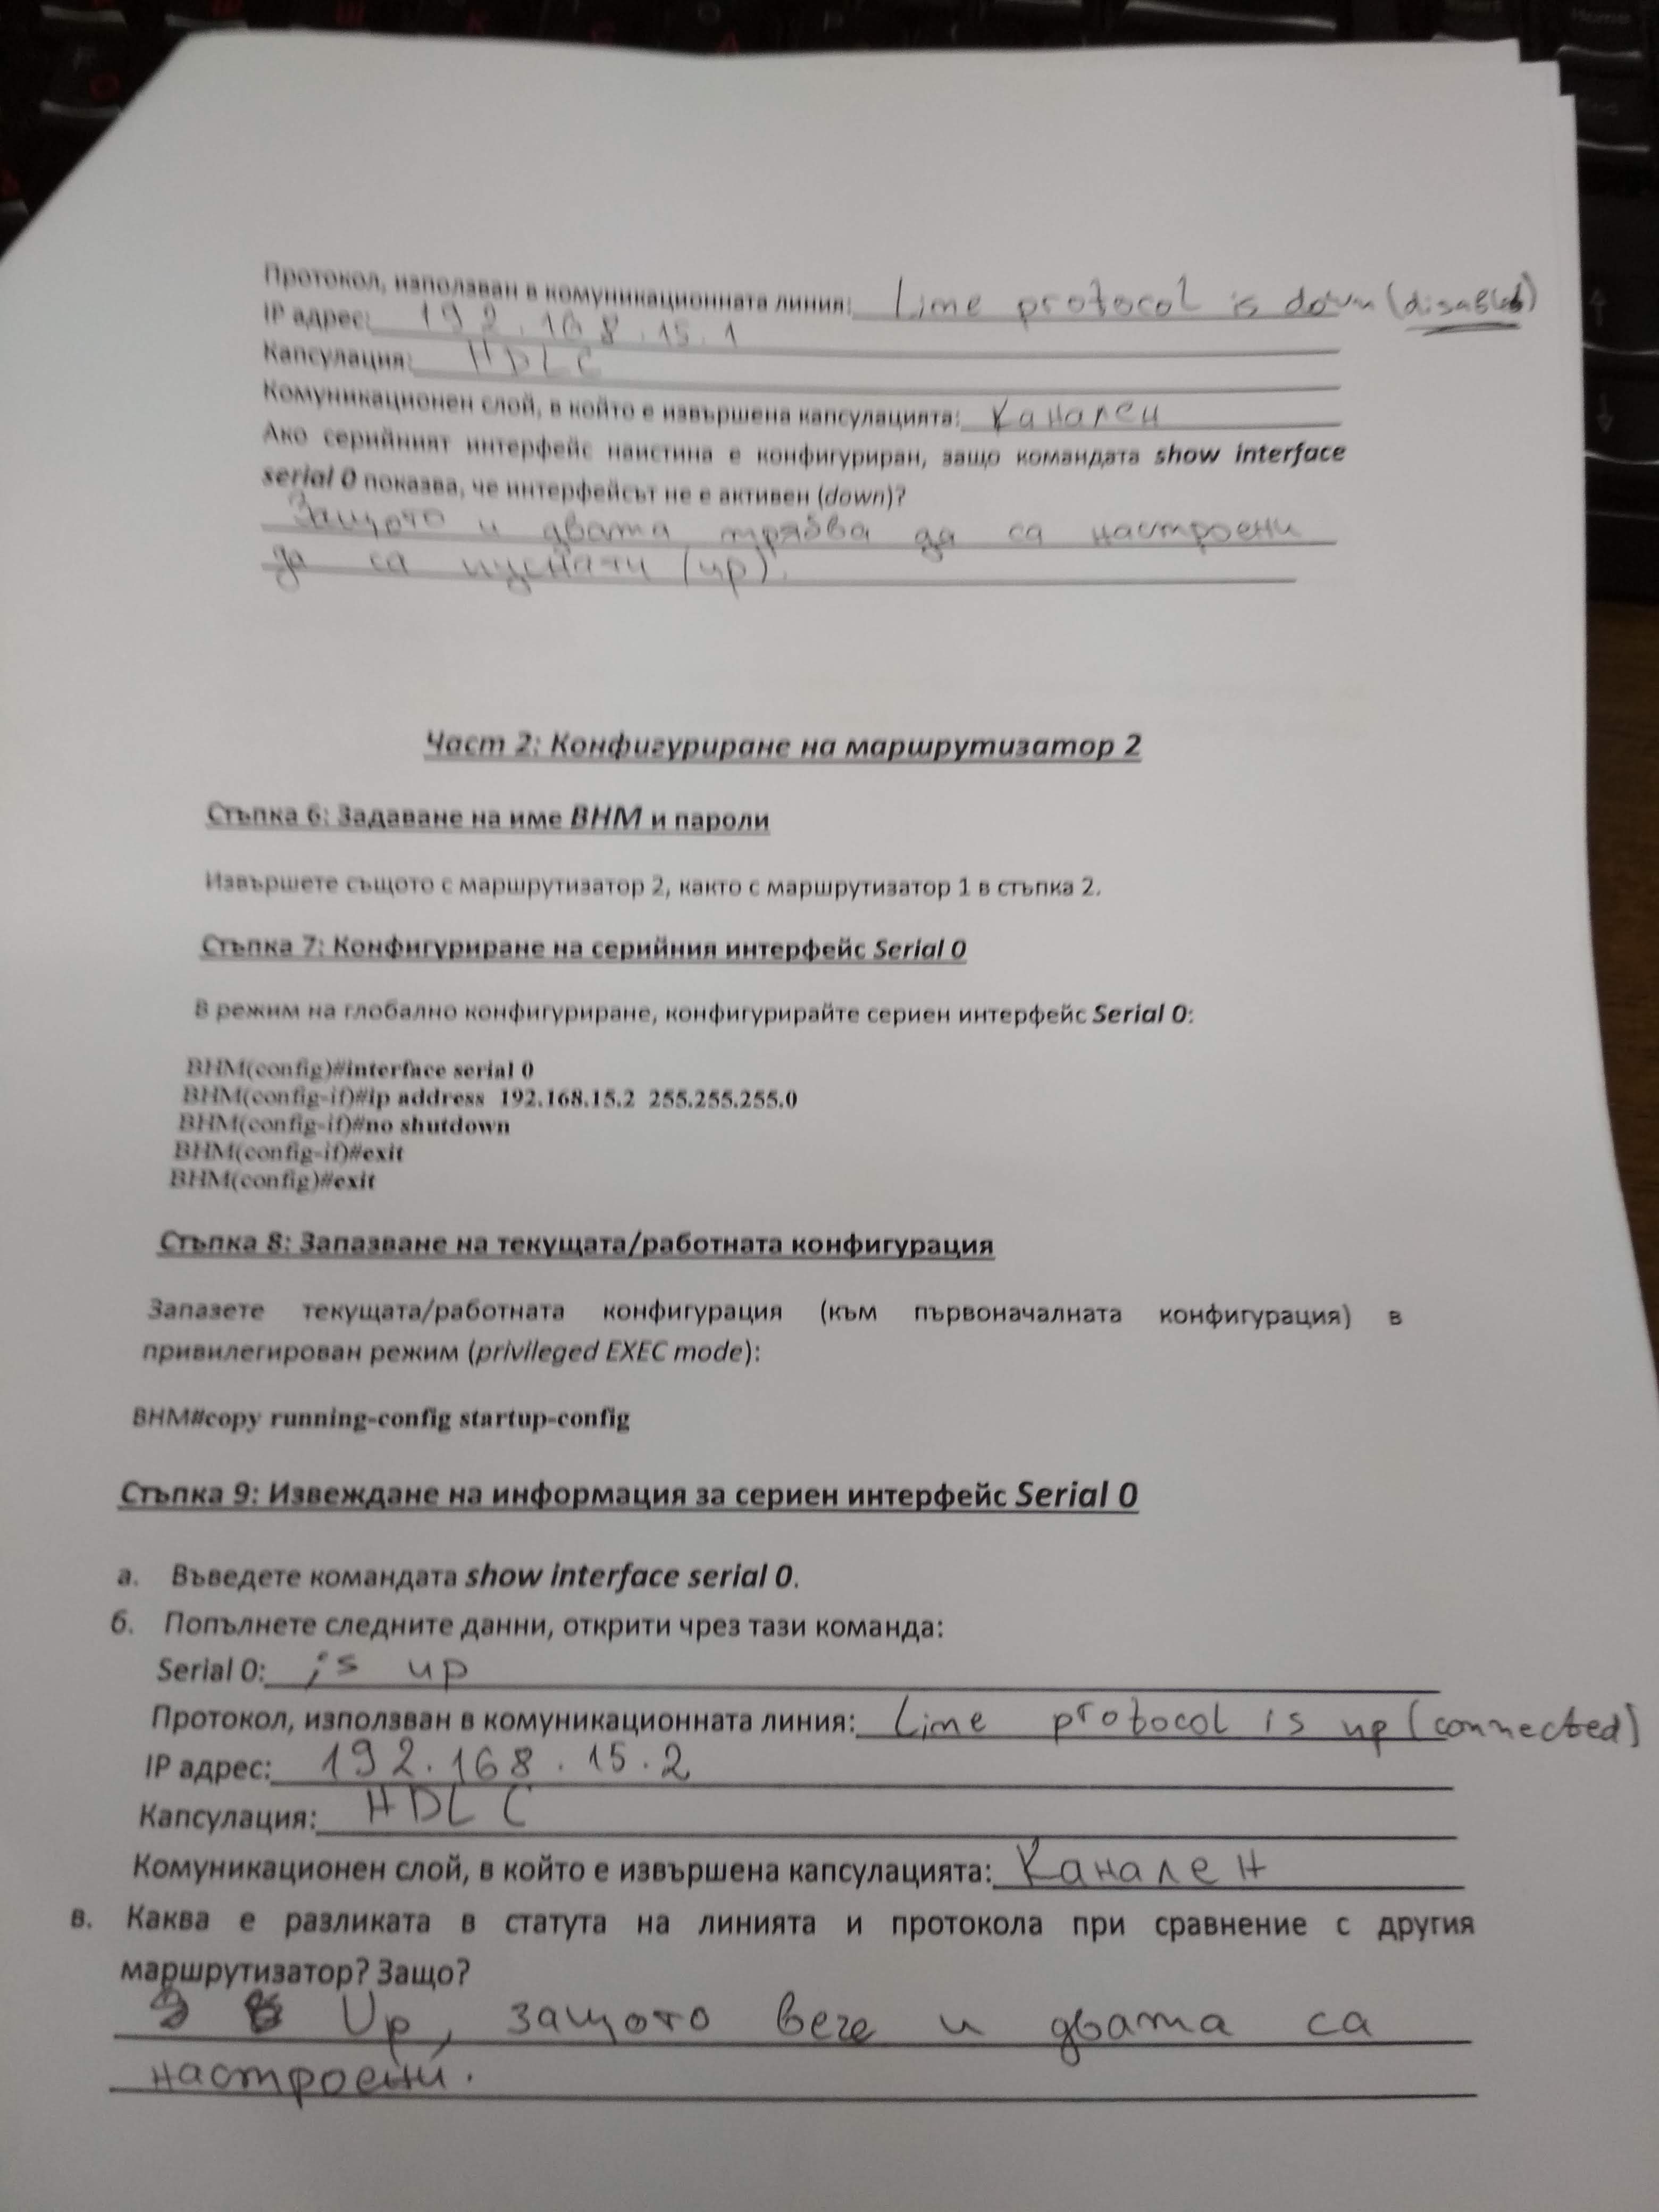 Протокол, използван в комуникационната линия: Lime protocol is down (disabled)
IP адрес: 192.168.15.1
Капсулация: HDLC
Комуникационен слой, в който е извършена капсулацията: Канален
Ако серийният интерфейс наистина е конфигуриран, защо командата show interface
serial 0 показва, че интерфейсът не е активен (down)?
Защото и двата трябва да са настроени
да са пуснати (up).
Част 2: Конфигуриране на маршрутизатор 2
Стъпка 6: Задаване на име BHM и пароли
Извършете същото с маршрутизатор 2, както с маршрутизатор 1 в стъпка 2.
Стъпка 7: Конфигуриране на серийния интерфейс Serial 0
В режим на глобално конфигуриране, конфигурирайте сериен интерфейс Serial 0:
BHM(config)#interface serial 0
BHM(config-if)#ip address 192.168.15.2 255.255.255.0
BHM(config-if)#no shutdown
BHM(config-if)#exit
BHM(config)#exit
Стъпка 8: Запазване на текущата/работната конфигурация
Запазете текущата/работната конфигурация (към първоначалната конфигурация) в
привилегирован режим (privileged EXEC mode):
BHM#copy running-config startup-config
Стъпка 9: Извеждане на информация за сериен интерфейс Serial 0
а. Въведете командата show interface serial 0.
б. Попълнете следните данни, открити чрез тази команда:
Serial 0: is up
Протокол, използван в комуникационната линия: Lime protocol is up (connected)
IP адрес: 192.168.15.2
Капсулация: HDLC
Комуникационен слой, в който е извършена капсулацията: Канален
в. Каква е разликата в статута на линията и протокола при сравнение с другия
маршрутизатор? Защо?
Up, защото вече и двата са
настроени.